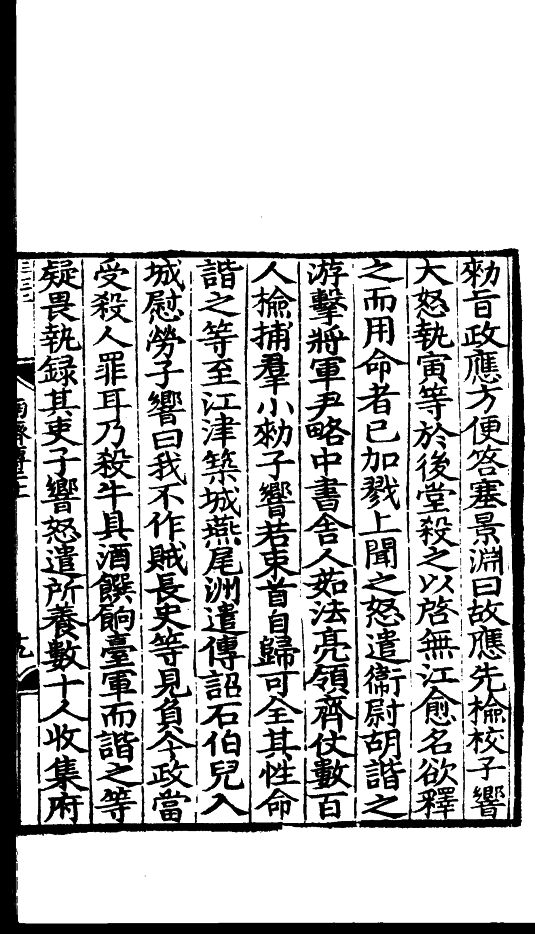 勑旨政應方便答塞景淵曰故應先檢校子響
大怒執寅等於後堂殺之以啓無江愈名欲釋
之而用命者已加戮上聞之怒遣衞尉胡諧之
游擊將軍尹略中書舍人茹法亮領齊仗數百
人檢捕羣小勑子響若束首自歸可全其性命
諧之等至江津築城燕尾洲遣傳詔石伯兒入
城慰勞子響曰我不作賊長史等見負今政當
受殺人罪耳乃殺牛具酒饌餉臺軍而諧之等
疑畏執録其吏子響怒遣所養數十人收集府